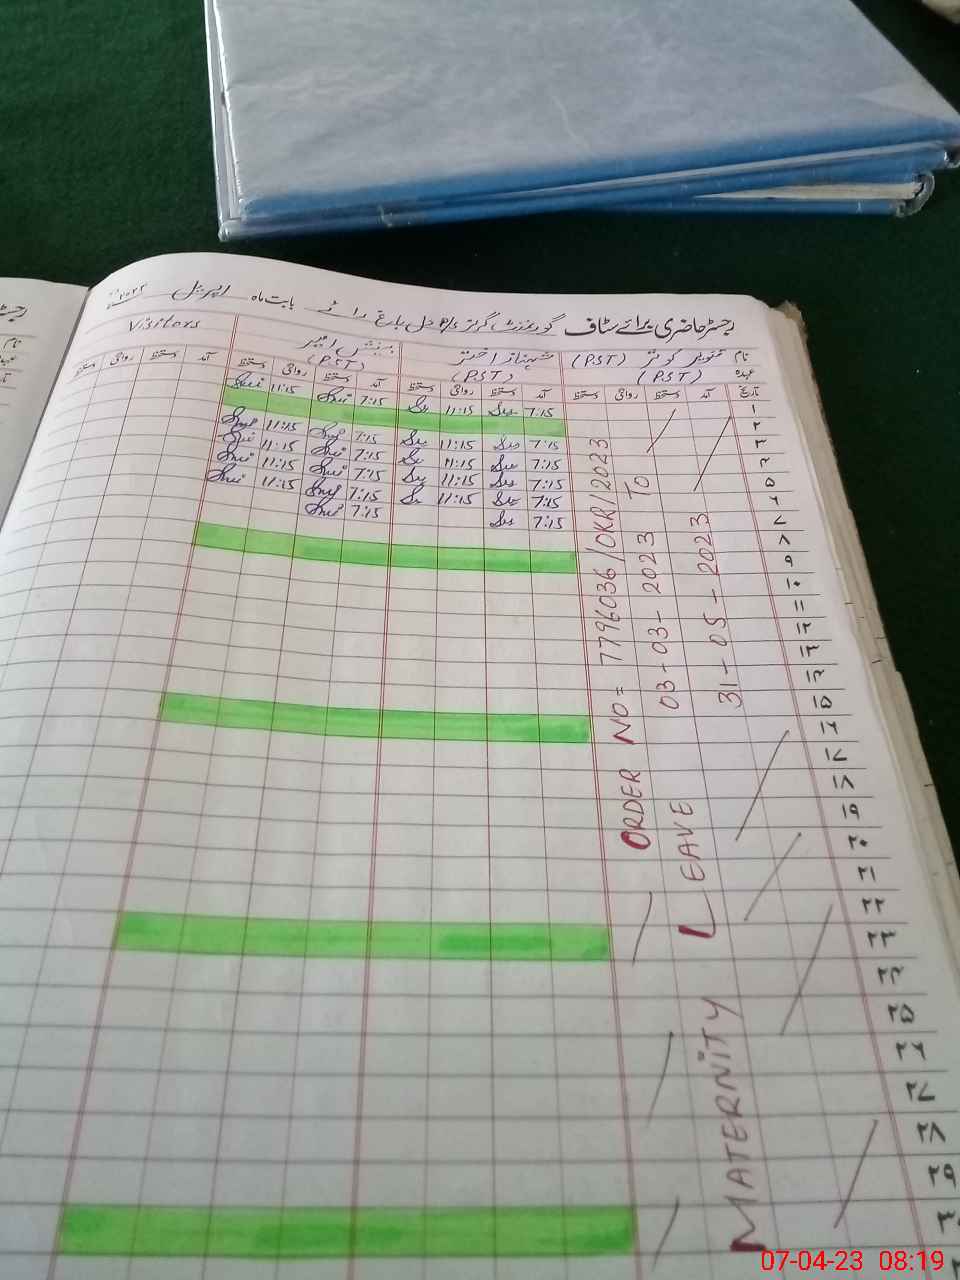 رجسٹر حاضری برائے سٹاف گورنمنٹ گرلز p/s دل باغ رائے بابت ماہ اپریل ۲۰۲۳
نام کوثر (PST) شہناز اختر Visitors
عہدہ (PST) (PST) (P.ST)
تاریخ آمد دستخط روانگی دستخط آمد دستخط روانگی دستخط آمد دستخط روانگی دستخط آمد دستخط روانگی دستخط
۱ 7:15 11:15 7:15 11:15
۲
۳ 7:15 11:15 7:15 11:15
۴ 7:15 11:15 7:15 11:15
۵ 7:15 11:15 7:15 11:15
۶ 7:15 11:15 7:15 11:15
۷ 7:15 7:15
۸
۹
۱۰
۱۱
۱۲
۱۳
۱۴
۱۵
۱۶
۱۷
۱۸
۱۹
۲۰
۲۱
۲۲
۲۳
۲۴
۲۵
۲۶
۲۷
۲۸
۲۹
۳۰
ORDER NO= 7796036/OKR/2023
03-03-2023 TO
MATERNITY LEAVE 31-05-2023
07-04-23 08:19